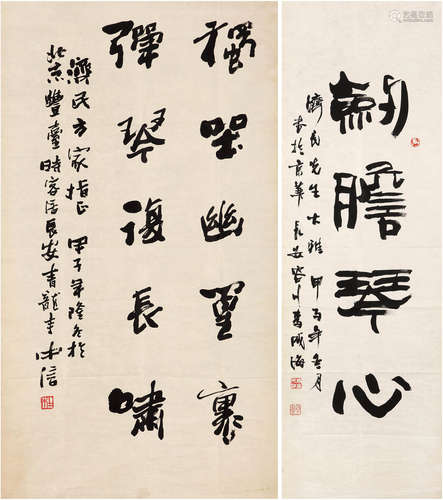 劍膽琴心
濟民先生大雅 甲子年春月
書於京華 長安
獨坐幽篁裏
彈琴復長嘯
濟民方家指正 甲子年隆冬於
北京豐臺時客居長安青龍寺